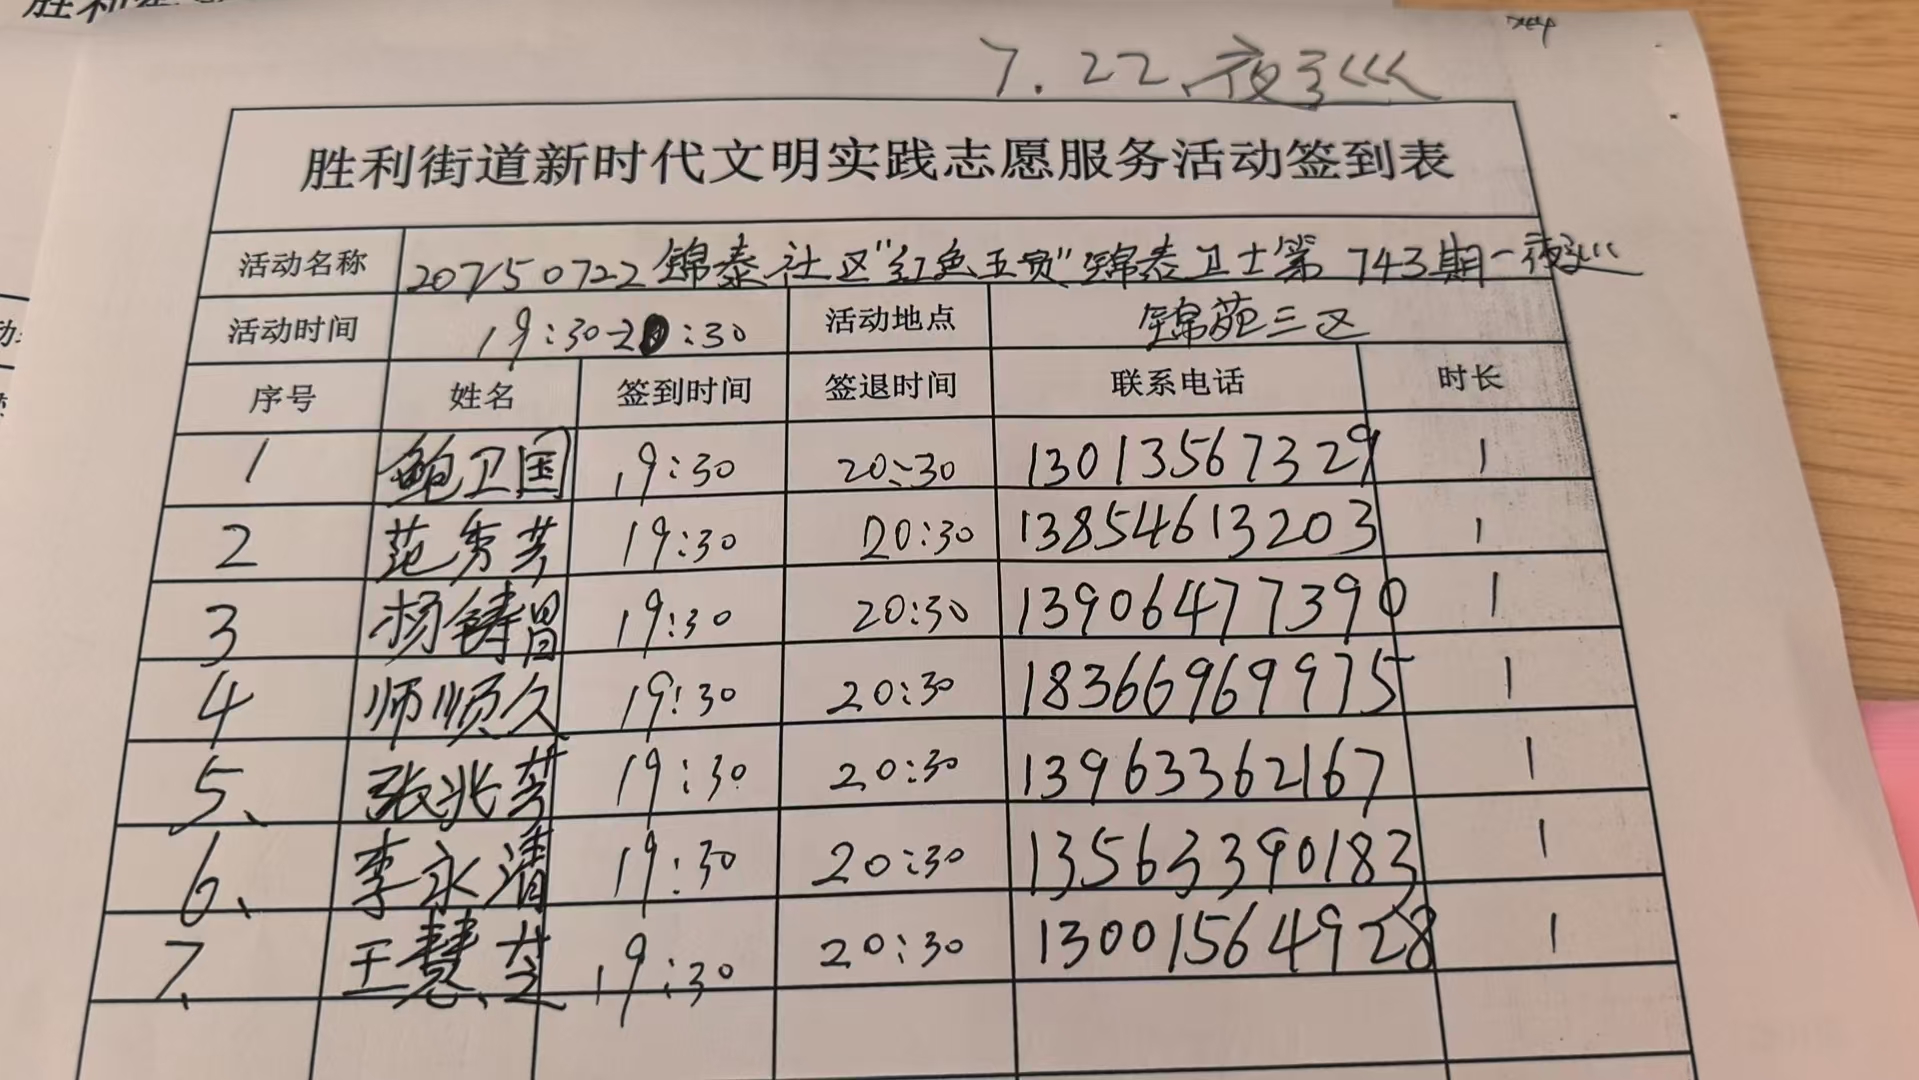 7.22.夜巡
胜利街道新时代文明实践志愿服务活动签到表
活动名称 20250722锦泰社区"红色五贡"锦泰卫士第743期-夜巡
活动时间 19:30-20:30 活动地点 锦苑三区
序号 姓名 签到时间 签退时间 联系电话 时长
1 鲍卫国 19:30 20:30 13013567329 1
2 范秀芳 19:30 20:30 13854613203 1
3 杨铸昌 19:30 20:30 13906477390 1
4 师顺久 19:30 20:30 18366969975 1
5、 张兆芳 19:30 20:30 13963362167 1
6、 李永清 19:30 20:30 13563390183 1
7、 王慧芝 19:30 20:30 13001564928 1